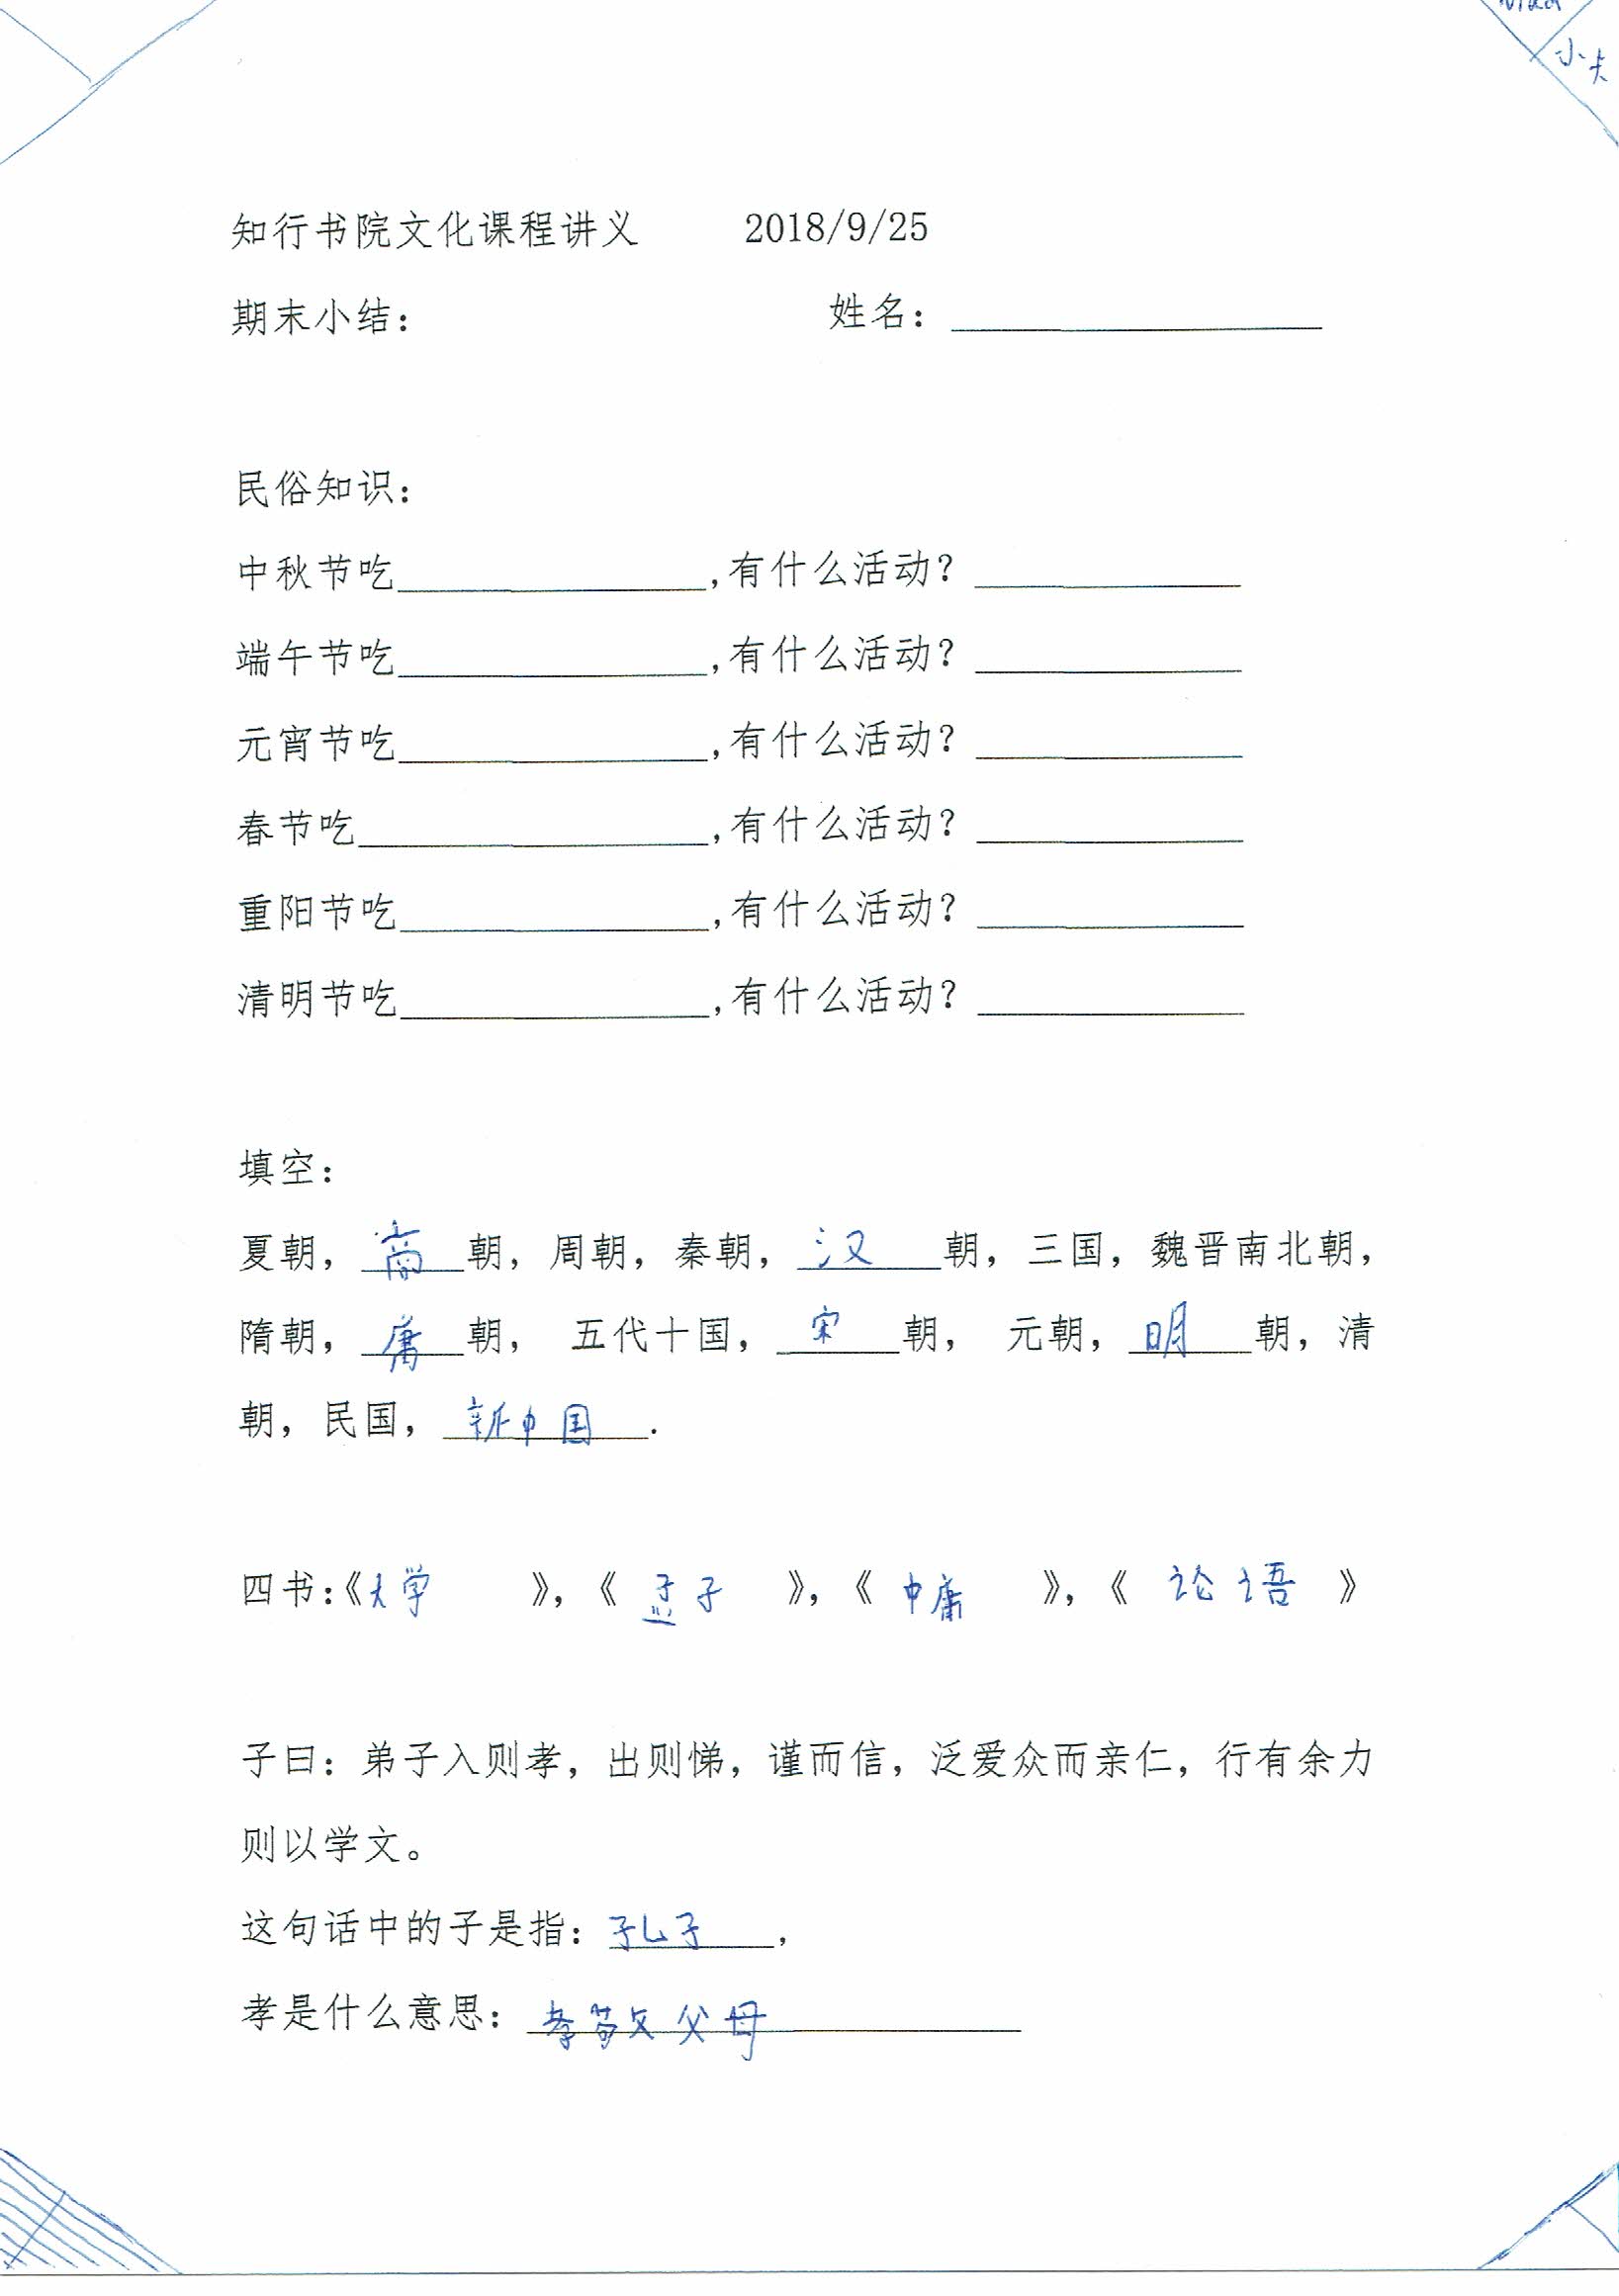 小夫
知行书院文化课程讲义 2018/9/25
期末小结： 姓名：
民俗知识：
中秋节吃＿＿＿,有什么活动？＿＿＿
端午节吃＿＿＿,有什么活动？＿＿＿
元宵节吃＿＿＿,有什么活动？＿＿＿
春节吃＿＿＿,有什么活动？＿＿＿
重阳节吃＿＿＿,有什么活动？＿＿＿
清明节吃＿＿＿,有什么活动？＿＿＿
填空：
夏朝，商朝，周朝，秦朝，汉朝，三国，魏晋南北朝，
隋朝，唐朝， 五代十国，宋朝， 元朝，明朝，清
朝，民国，新中国.
四书：《大学》，《孟子》，《中庸》，《论语》
子曰：弟子入则孝，出则悌，谨而信，泛爱众而亲仁，行有余力
则以学文。
这句话中的子是指：孔子，
孝是什么意思：孝敬父母